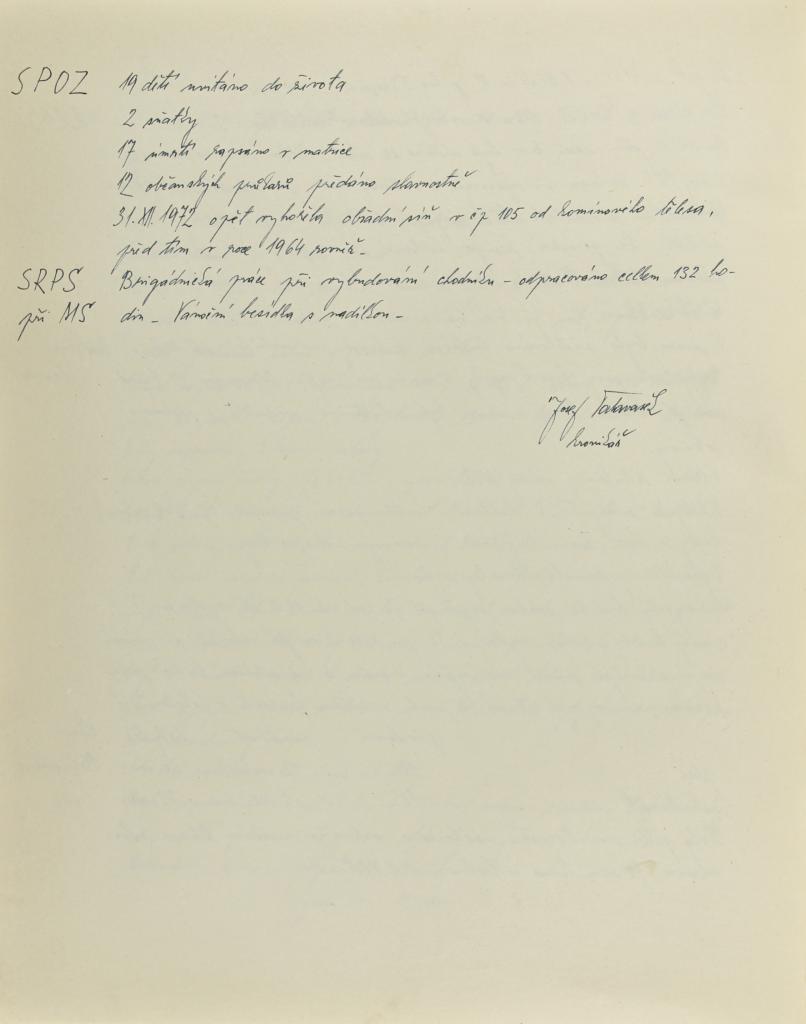 SPOZ 19 dětí uvítáno do života
2 sňatky
17 úmrtí zapsáno v matrice
12 občanských průkazů předáno slavnostně
31.XII.1972 opět vyhořela obřadní síň v čp 105 od komínového tělesa,
před tím v roce 1964 rovněž.
SRPŠ Brigádnická práce při vybudování chodníku – odpracováno celkem 132 ho-
při MŠ din – Vánoční besídka s nadílkou –
Josef
kronikář